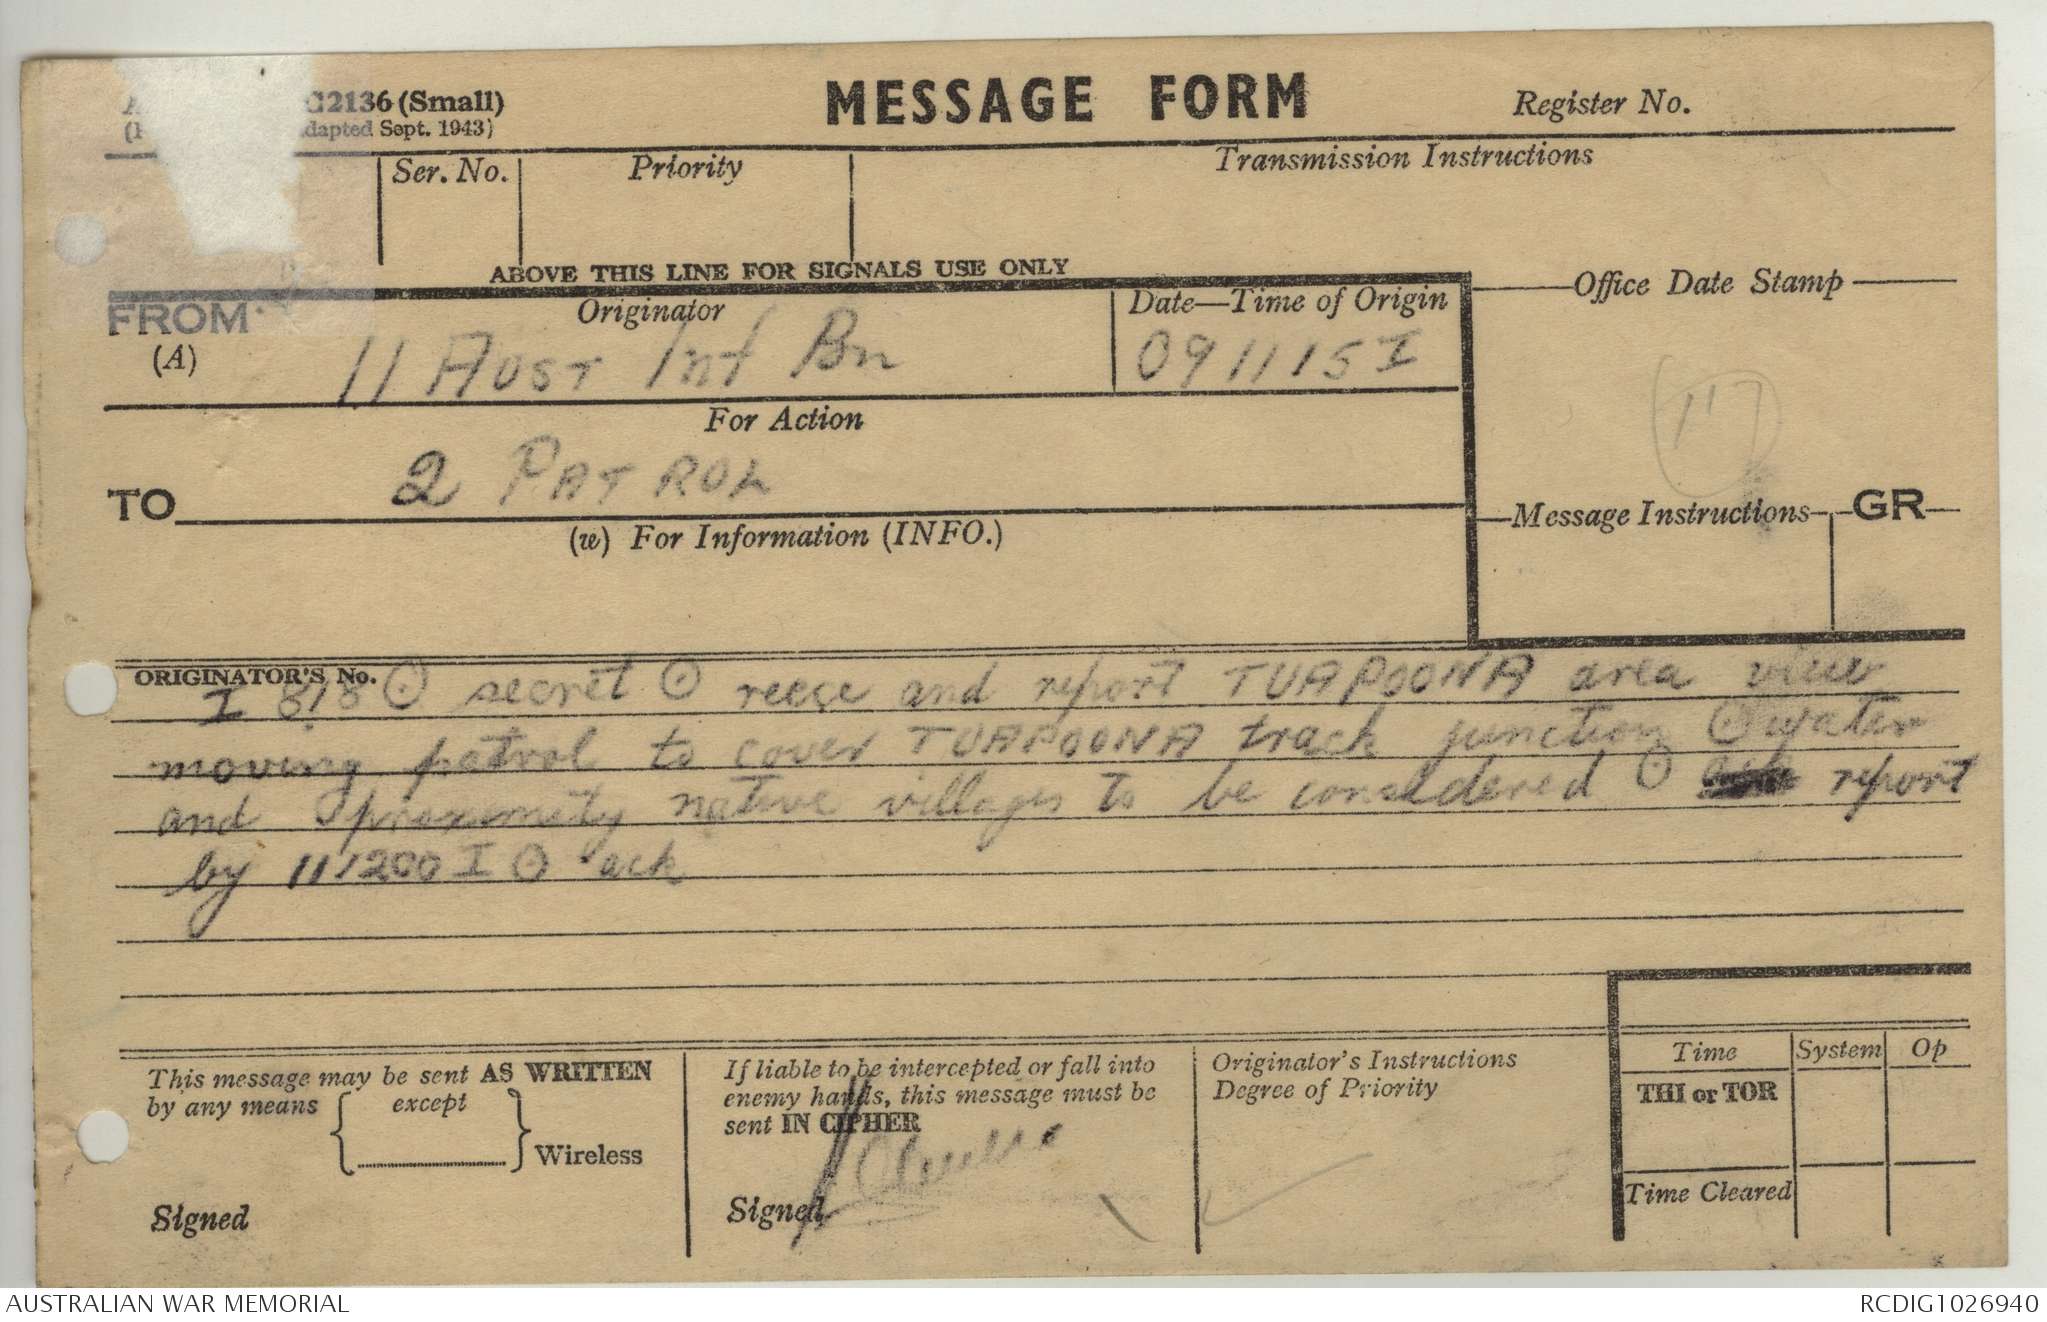 C2136 (Small)
MESSAGE FORM
Register No.
dapted Sept. 1943)
Ser. No.
Priority
Transmission Instructions
ABOVE THIS LINE FOR SIGNALS USE ONLY
FROM
(A)
Originator
11 AUST Inf Bn
Date—Time of Origin
091115 I
Office Date Stamp
117
For Action
TO
2 PATROL
(w) For Information (INFO.)
Message Instructions
GR
ORIGINATOR'S No.
I 818 ⊙ secret ⊙ recce and report TUAPOONA area view
moving patrol to cover TUAPOONA track junction ⊙ water
and proximity native villages to be considered ⊙ report
by 111200 I ⊙ ack
This message may be sent AS WRITTEN
by any means except
Wireless
Signed
If liable to be intercepted or fall into
enemy hands, this message must be
sent IN CIPHER
Signed
Originator's Instructions
Degree of Priority
Time
System
Op
THI or TOR
Time Cleared
AUSTRALIAN WAR MEMORIAL
RCDIG1026940